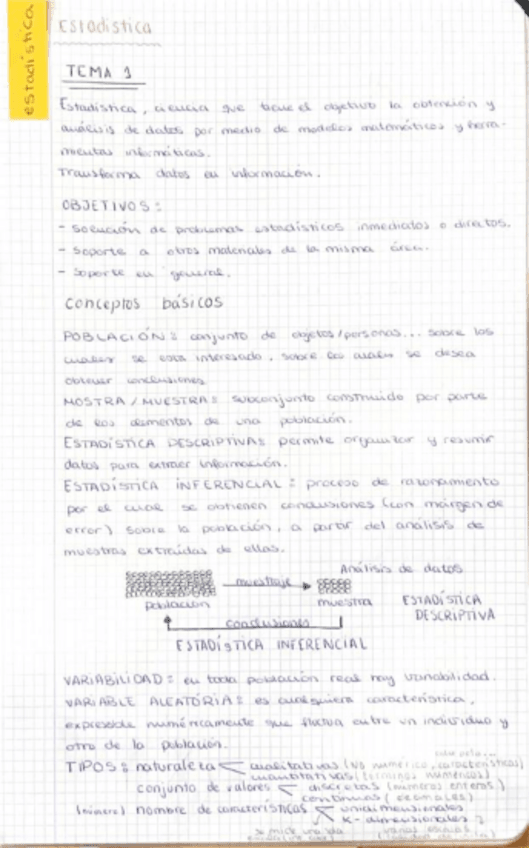 estadística
Estadística
TEMA 1
Estadística, ciencia que tiene el objetivo la obtención y
análisis de datos por medio de modelos matemáticos y herra-
mientas informáticas.
Transforma datos en información.
OBJETIVOS:
- Solución de problemas estadísticos inmediatos o directos.
- Soporte a otros materiales de la misma área.
- Soporte en general.
Conceptos básicos
POBLACIÓN: conjunto de objetos/personas... sobre los
cuales se está interesado, sobre los cuales se desea
obtener conclusiones.
MOSTRA / MUESTRA: subconjunto construido por parte
de los elementos de una población.
ESTADÍSTICA DESCRIPTIVA: permite organizar y resumir
datos para extraer información.
ESTADÍSTICA INFERENCIAL: proceso de razonamiento
por el cual se obtienen conclusiones (con márgen de
error) sobre la población, a partir del análisis de
muestras extraídas de ellas.
muestraje
Análisis de datos
población
muestra
ESTADÍSTICA
DESCRIPTIVA
conclusiones
ESTADÍSTICA INFERENCIAL
VARIABILIDAD: en toda población real hay variabilidad.
VARIABLE ALEATÓRIA: es cualquiera característica,
expresable numéricamente que fluctua entre un individuo y
otro de la población.
TIPOS: naturaleza cualitativas (no numérico, características)
cuantitativas (términos numéricos)
conjunto de valores discretas (números enteros)
continuas (decimales)
(número) nombre de características unidimensionales
K-dimensionales
se mide una sola
varias